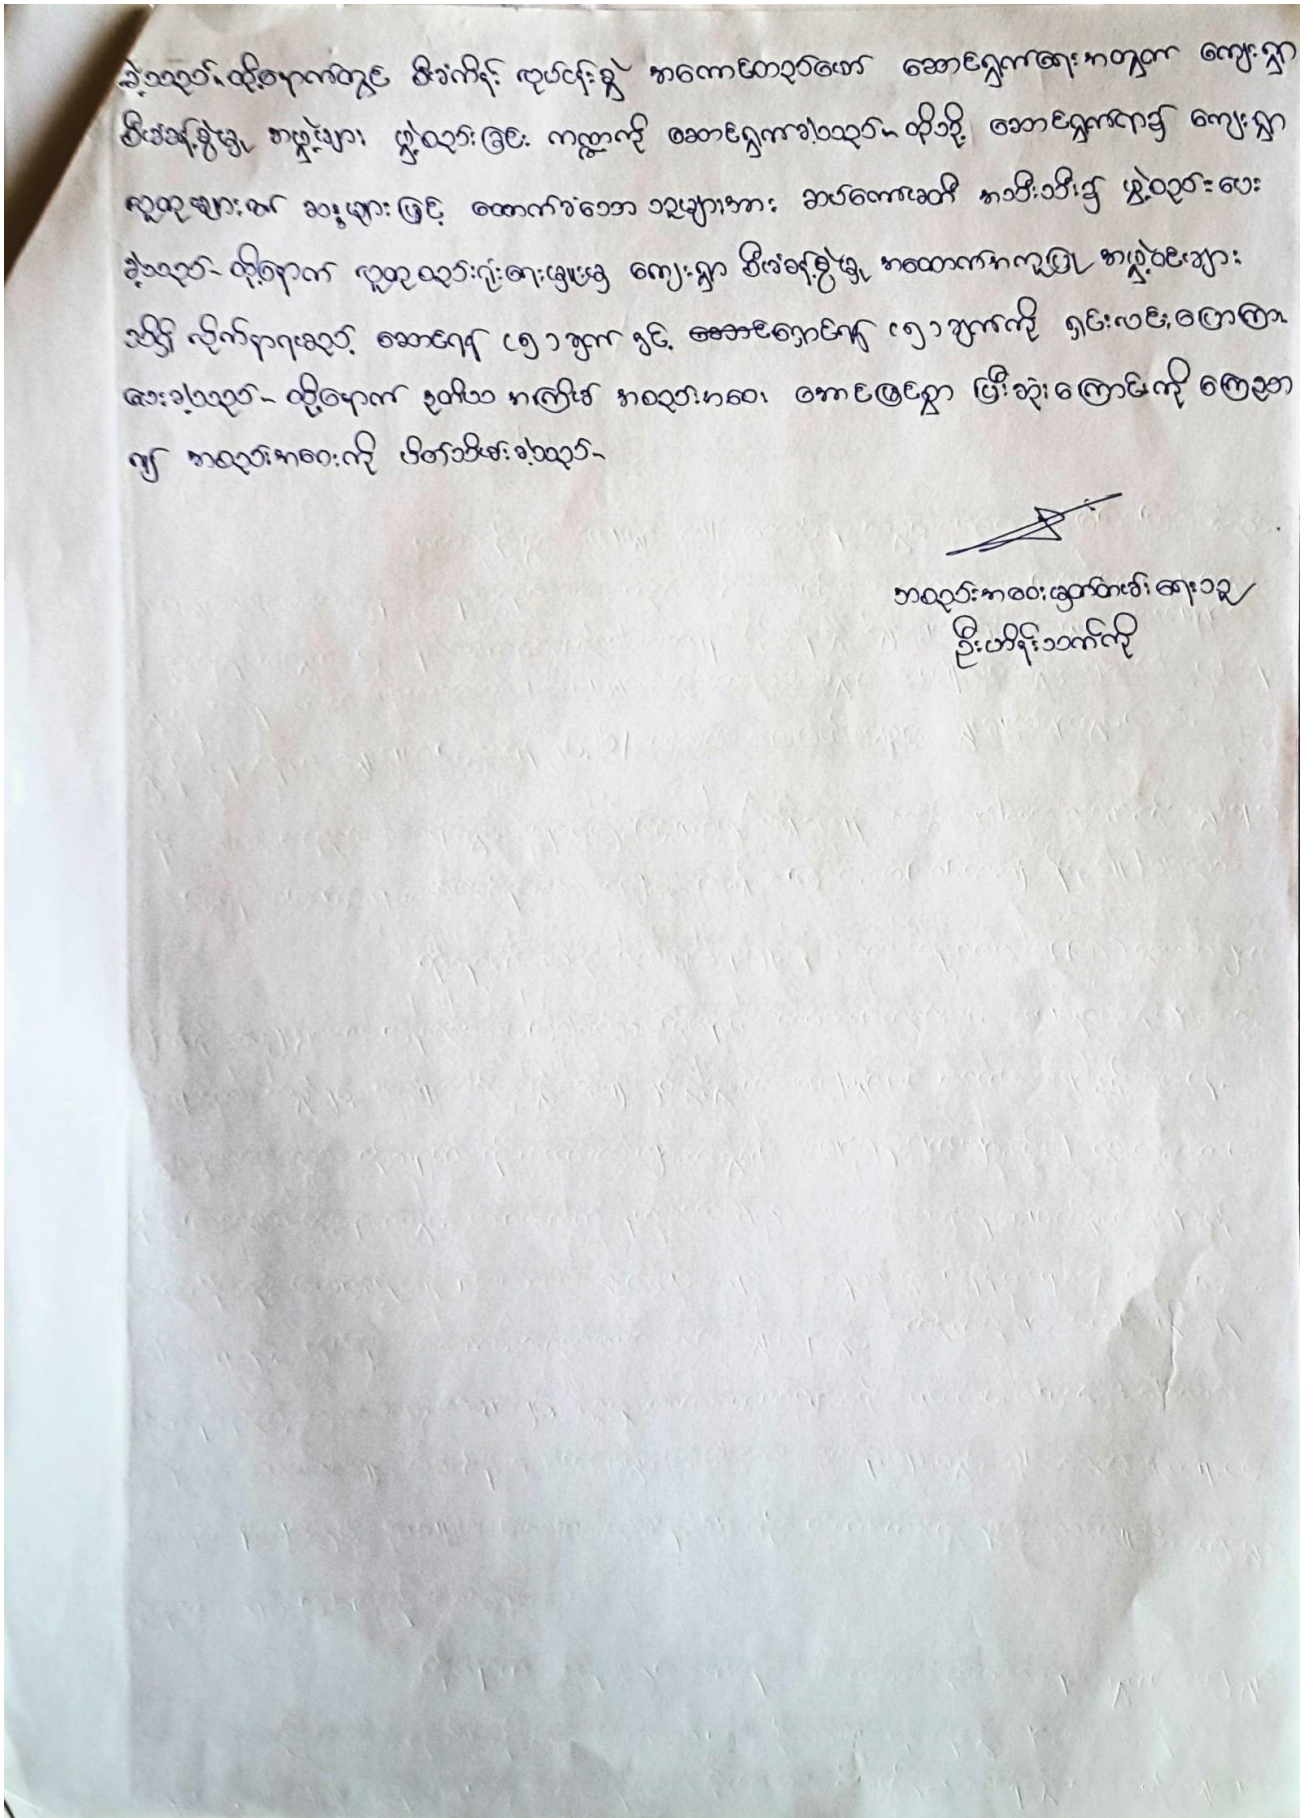 ခဲ့သည်။ ထို့နောက်တွင် စီမံကိန်း လုပ်ငန်းစဉ် အကောင်အထည်ဖော် ဆောင်ရွက်ရေးအတွက် ကျေးရွာ
စီမံခန့်ခွဲမှု အဖွဲ့များ ဖွဲ့စည်းခြင်း ကဏ္ဍကို ဆောင်ရွက်ခဲ့သည်။ ထိုသို့ ဆောင်ရွက်ရာ၌ ကျေးရွာ
လူထုများ၏ ဆန္ဒများဖြင့် ထောက်ခံသော သူများအား ဆပ်ကော်မတီ အသီးသီး၌ ဖွဲ့စည်းပေး
ခဲ့သည်။ ထို့နောက် လူထုစည်းရုံးရေးမှူးမှ ကျေးရွာ စီမံခန့်ခွဲမှု အထောက်အကူပြု အဖွဲ့ဝင်များ
သိရှိ လိုက်နာရမည့် ဆောင်ရန် (၅) ချက် နှင့် ရှောင်ရန် (၅) ချက်ကို ရှင်းလင်းပြောကြား
ပေးခဲ့သည်။ ထို့နောက် ဒုတိယ အကြိမ် အစည်းအဝေး အောင်မြင်စွာ ပြီးဆုံးကြောင်းကို ကြေညာ
၍ အစည်းအဝေးကို ပိတ်သိမ်းခဲ့သည်။
အစည်းအဝေးမှတ်တမ်းရေးသူ
ဦးဟိန်းသက်ကို